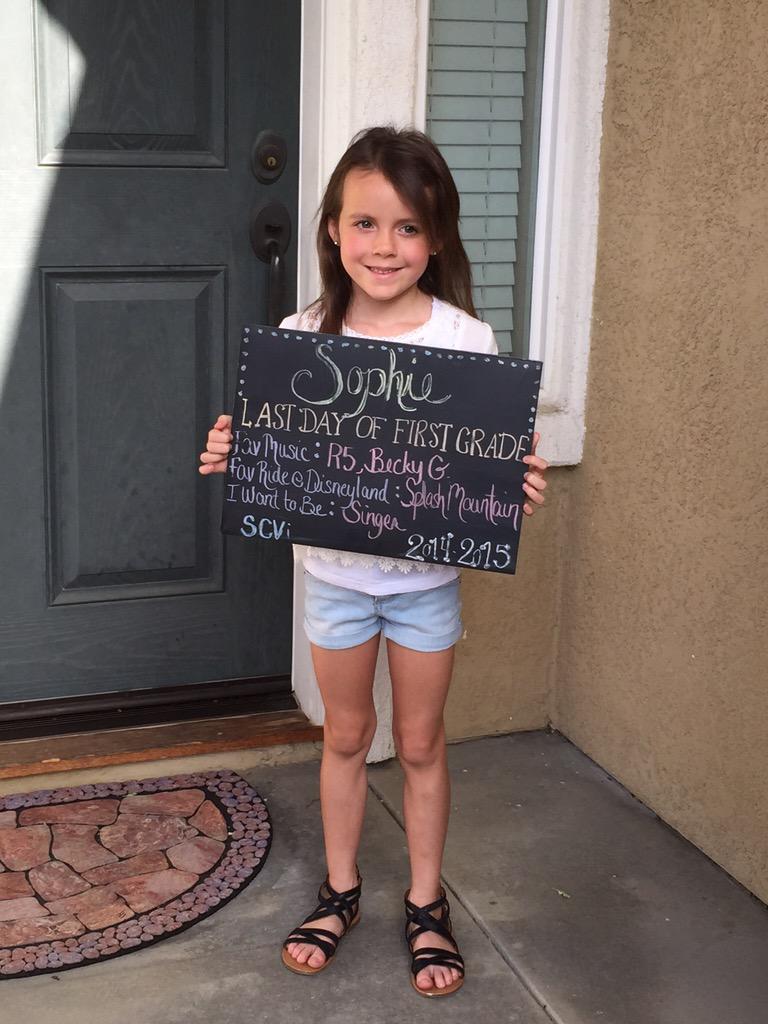 Sophie
LAST DAY OF FIRST GRADE
Fav Music: R5, Becky G.
Fav Ride @ Disneyland: Splash Mountain
I Want to Be: Singer
SCVi 2014-2015